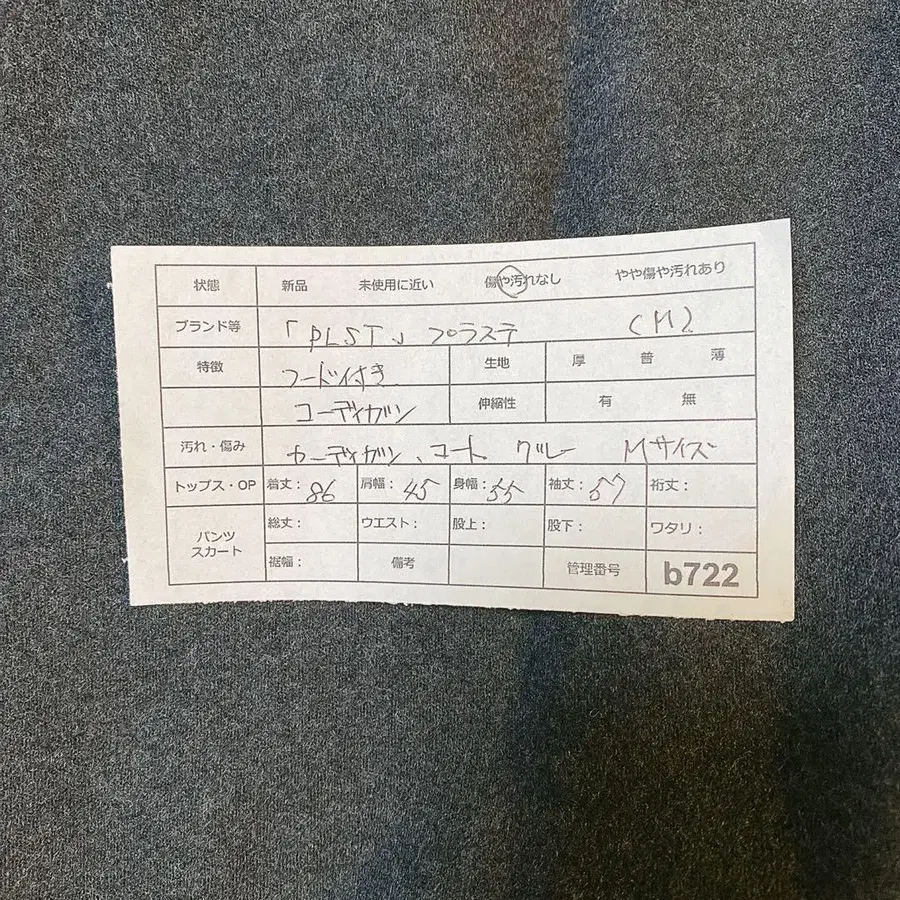 状態 新品 未使用に近い 傷や汚れなし やや傷や汚れあり
ブランド等 「PLST」 プラステ (M)
特徴 フード付き 生地 厚 普 薄
コーディガン 伸縮性 有 無
汚れ・傷み カーディガン、コート グレー Mサイズ
トップス・OP 着丈:86 肩幅:45 身幅:55 袖丈:57 裄丈:
パンツ スカート 総丈: ウエスト: 股上: 股下: ワタリ:
裾幅: 備考 管理番号 b722